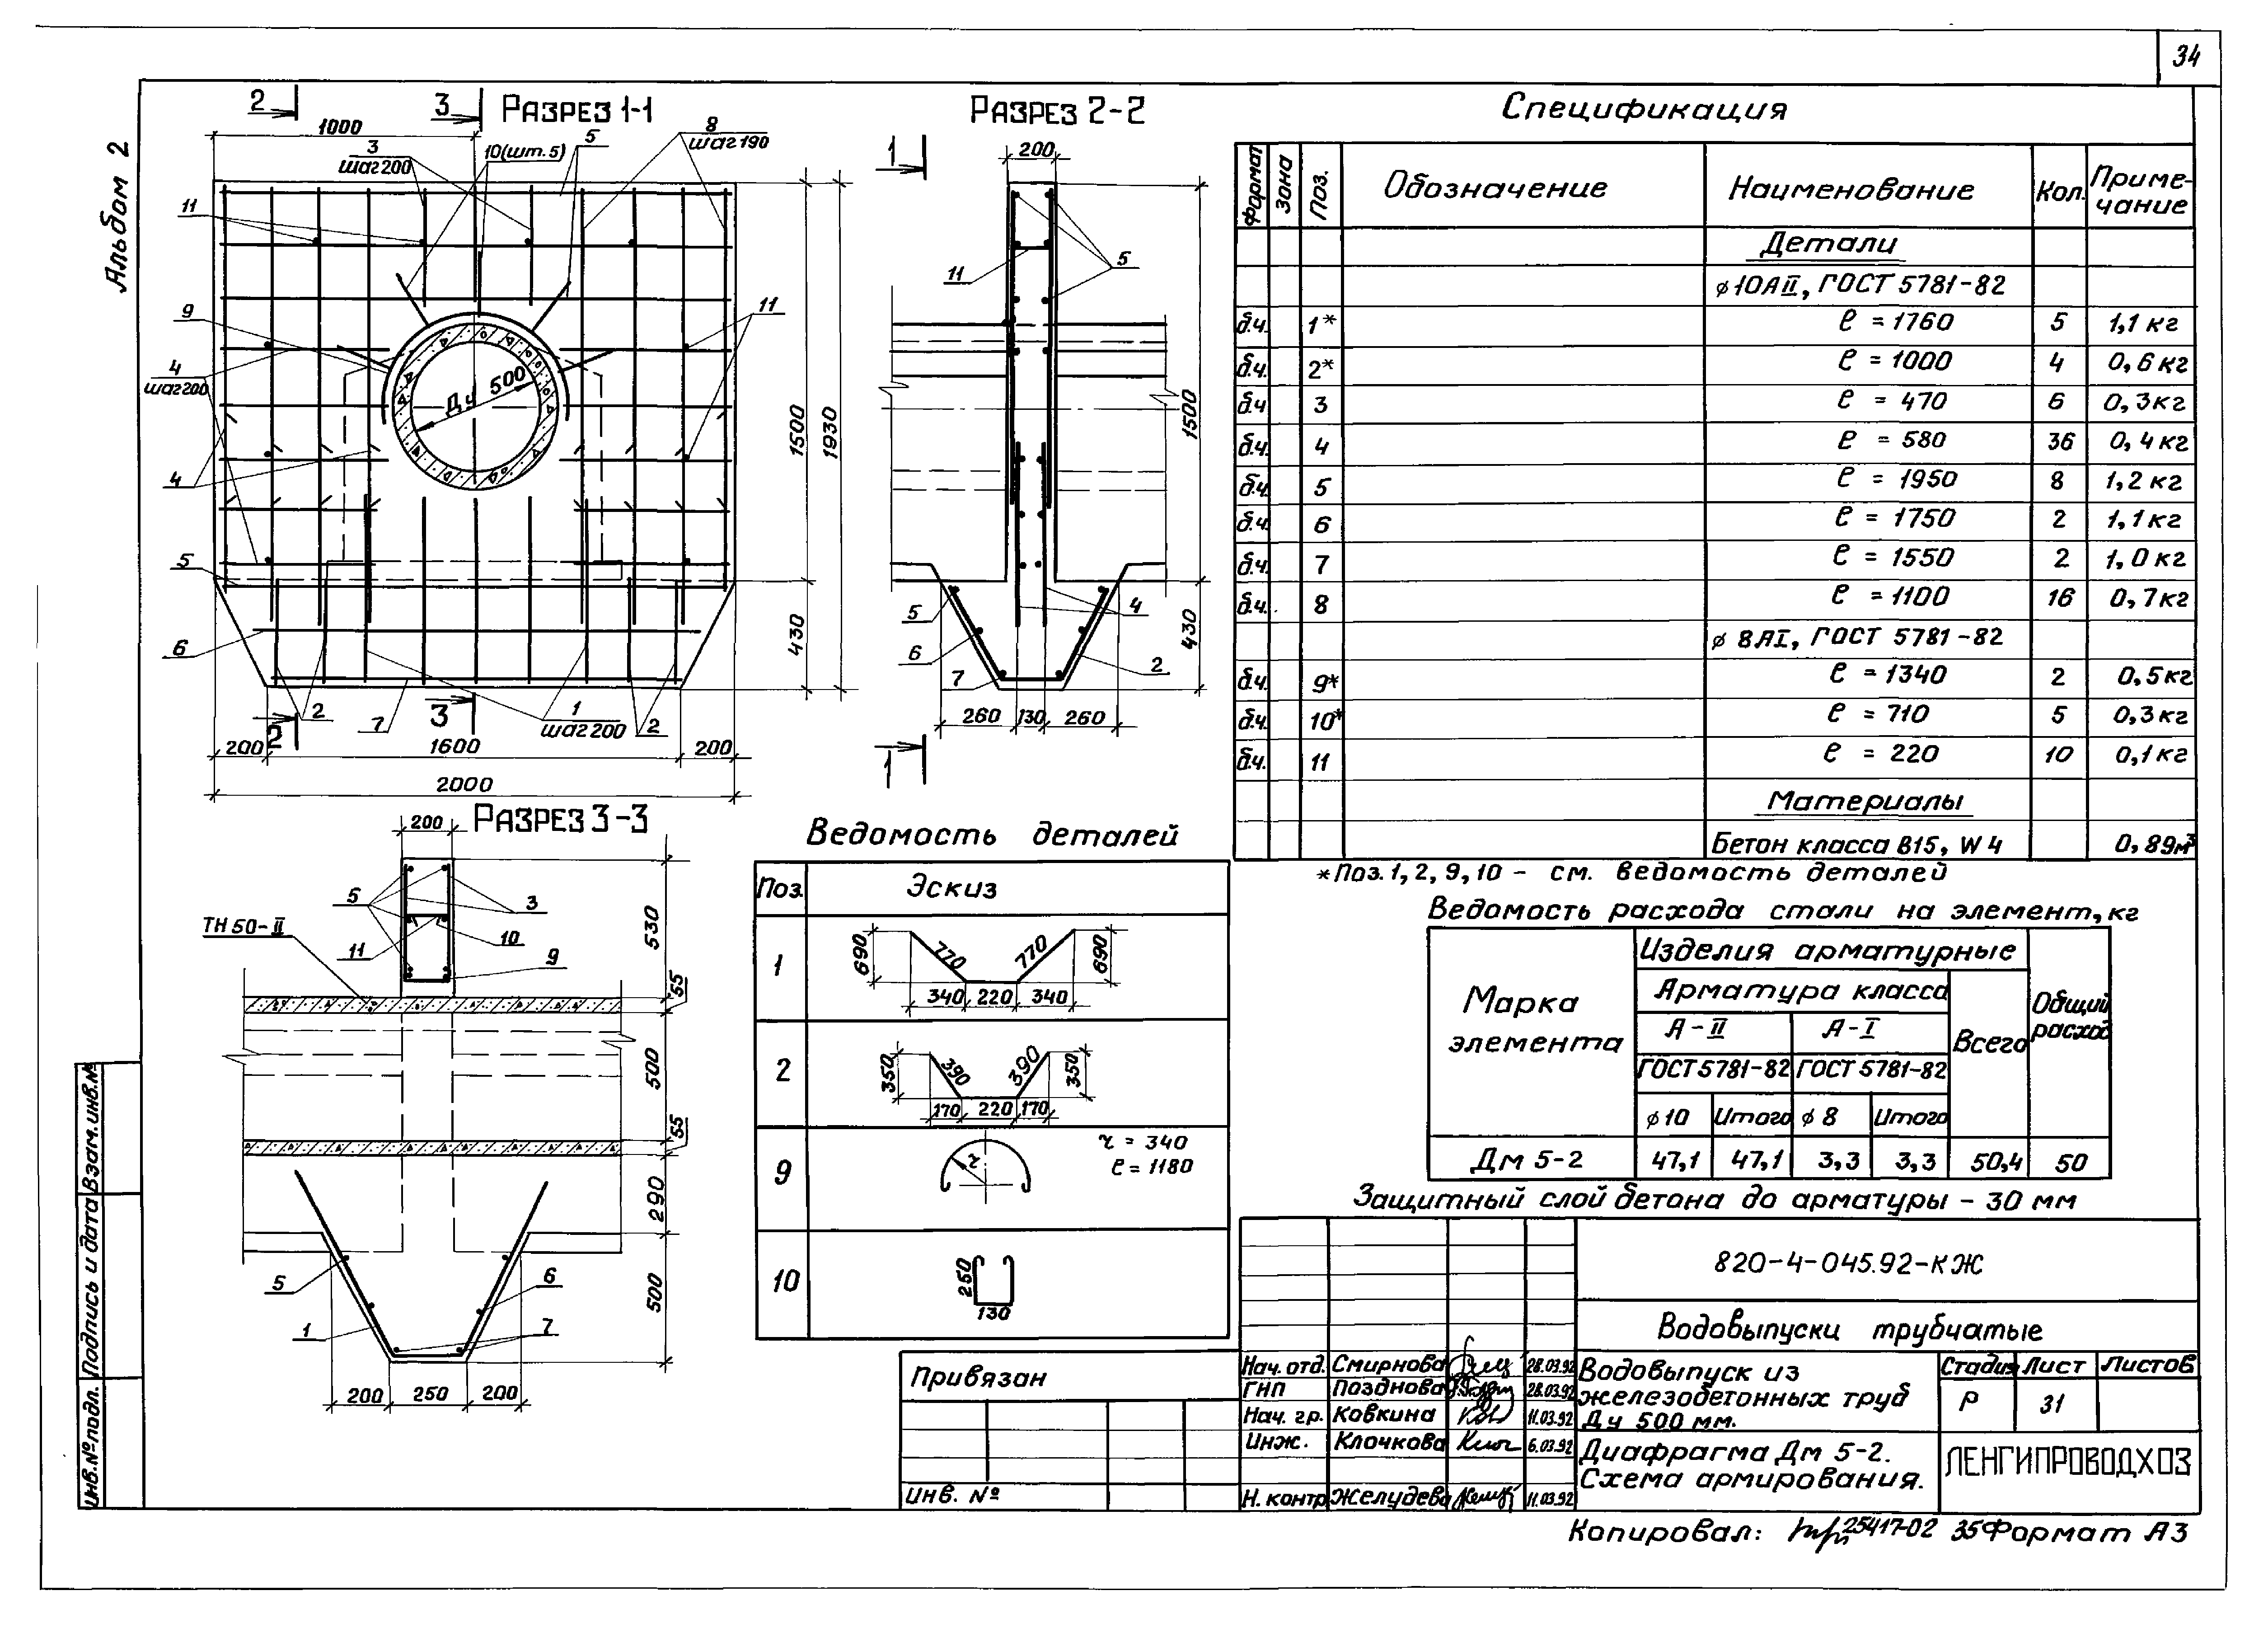 34
Альбом 2
Разрез 1-1
2
3
1000
3
шаг 200
10(шт.5)
5
8
шаг 190
11
9
4
шаг 200
4
5
6
11
Ду 500
1500
1930
430
2
7
3
1
шаг 200
2
2
200
1600
200
2000
Разрез 2-2
1
200
11
5
1500
5
4
6
7
2
430
260
130
260
1
Разрез 3-3
200
5
3
ТН 50-II
11
10
9
530
55
500
55
290
500
5
6
1
7
200
250
200
Ведомость деталей
Поз. Эскиз
1
690
770
770
690
340
220
340
2
350
390
390
350
170
220
170
9
r
r = 340
ℓ = 1180
10
250
130
Спецификация
Формат Зона Поз. Обозначение Наименование Кол. Приме-
чание
Детали
ϕ10АII, ГОСТ 5781-82
б.ч. 1* ℓ = 1760 5 1,1 кг
б.ч. 2* ℓ = 1000 4 0,6 кг
б.ч. 3 ℓ = 470 6 0,3 кг
б.ч. 4 ℓ = 580 36 0,4 кг
б.ч. 5 ℓ = 1950 8 1,2 кг
б.ч. 6 ℓ = 1750 2 1,1 кг
б.ч. 7 ℓ = 1550 2 1,0 кг
б.ч. 8 ℓ = 1100 16 0,7 кг
ϕ 8АI, ГОСТ 5781-82
б.ч. 9* ℓ = 1340 2 0,5 кг
б.ч. 10* ℓ = 710 5 0,3 кг
б.ч. 11 ℓ = 220 10 0,1 кг
Материалы
Бетон класса В15, W4 0,89м³
*Поз. 1, 2, 9, 10 - см. ведомость деталей
Ведомость расхода стали на элемент, кг
Марка
элемента
Изделия арматурные
Арматура класса
А-II А-I
ГОСТ 5781-82 ГОСТ 5781-82
ϕ10 Итого ϕ8 Итого
Всего
Общий
расход
Дм 5-2 47,1 47,1 3,3 3,3 50,4 50
Защитный слой бетона до арматуры - 30 мм
820-4-045.92-КЖ
Водовыпуски трубчатые
Нач. отд. Смирнова 28.03.92
ГНП Позднова 28.03.92
Нач. гр. Ковкина 11.03.92
Инж. Клочкова 6.03.92
Н. контр Желудева 11.03.92
Водовыпуск из
железобетонных труб
Ду 500 мм.
Стадия Лист Листов
Р 31
Диафрагма Дм 5-2.
Схема армирования.
ЛЕНГИПРОВОДХОЗ
Привязан
Инв. №
Инв.№подл. Подпись и дата Взам.инв.№
Копировал: 25417-02 35 Формат А3